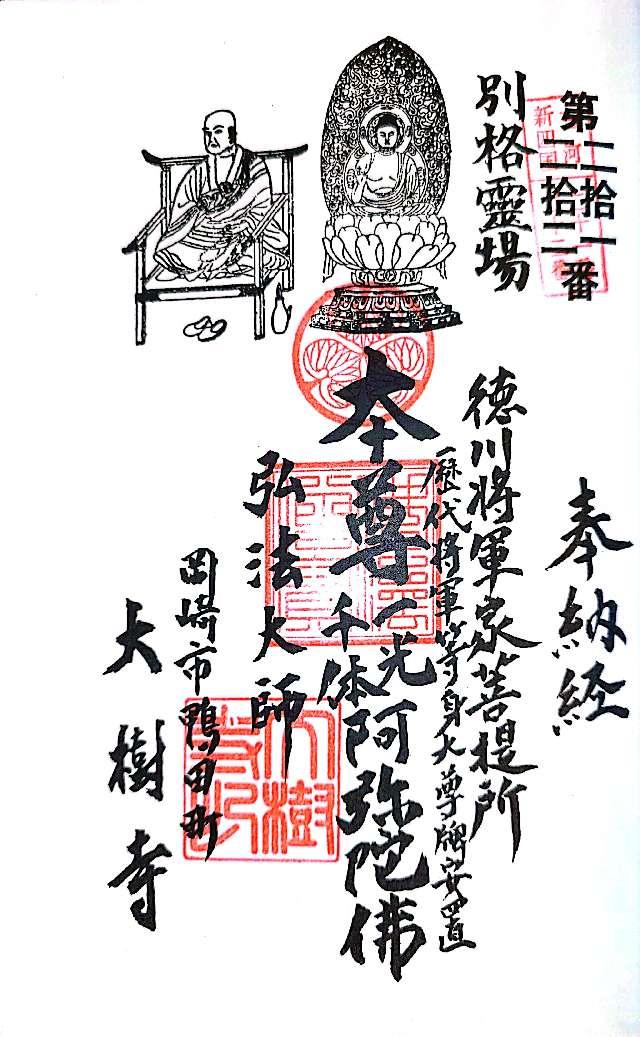 第二拾一
二拾二番
新四国
別格靈場
奉納経
徳川将軍家菩提所
歴代将軍等身大尊牌安置
本尊 一光千体阿弥陀佛
弘法大師
岡崎市鴨田町
大樹寺
大樹寺印